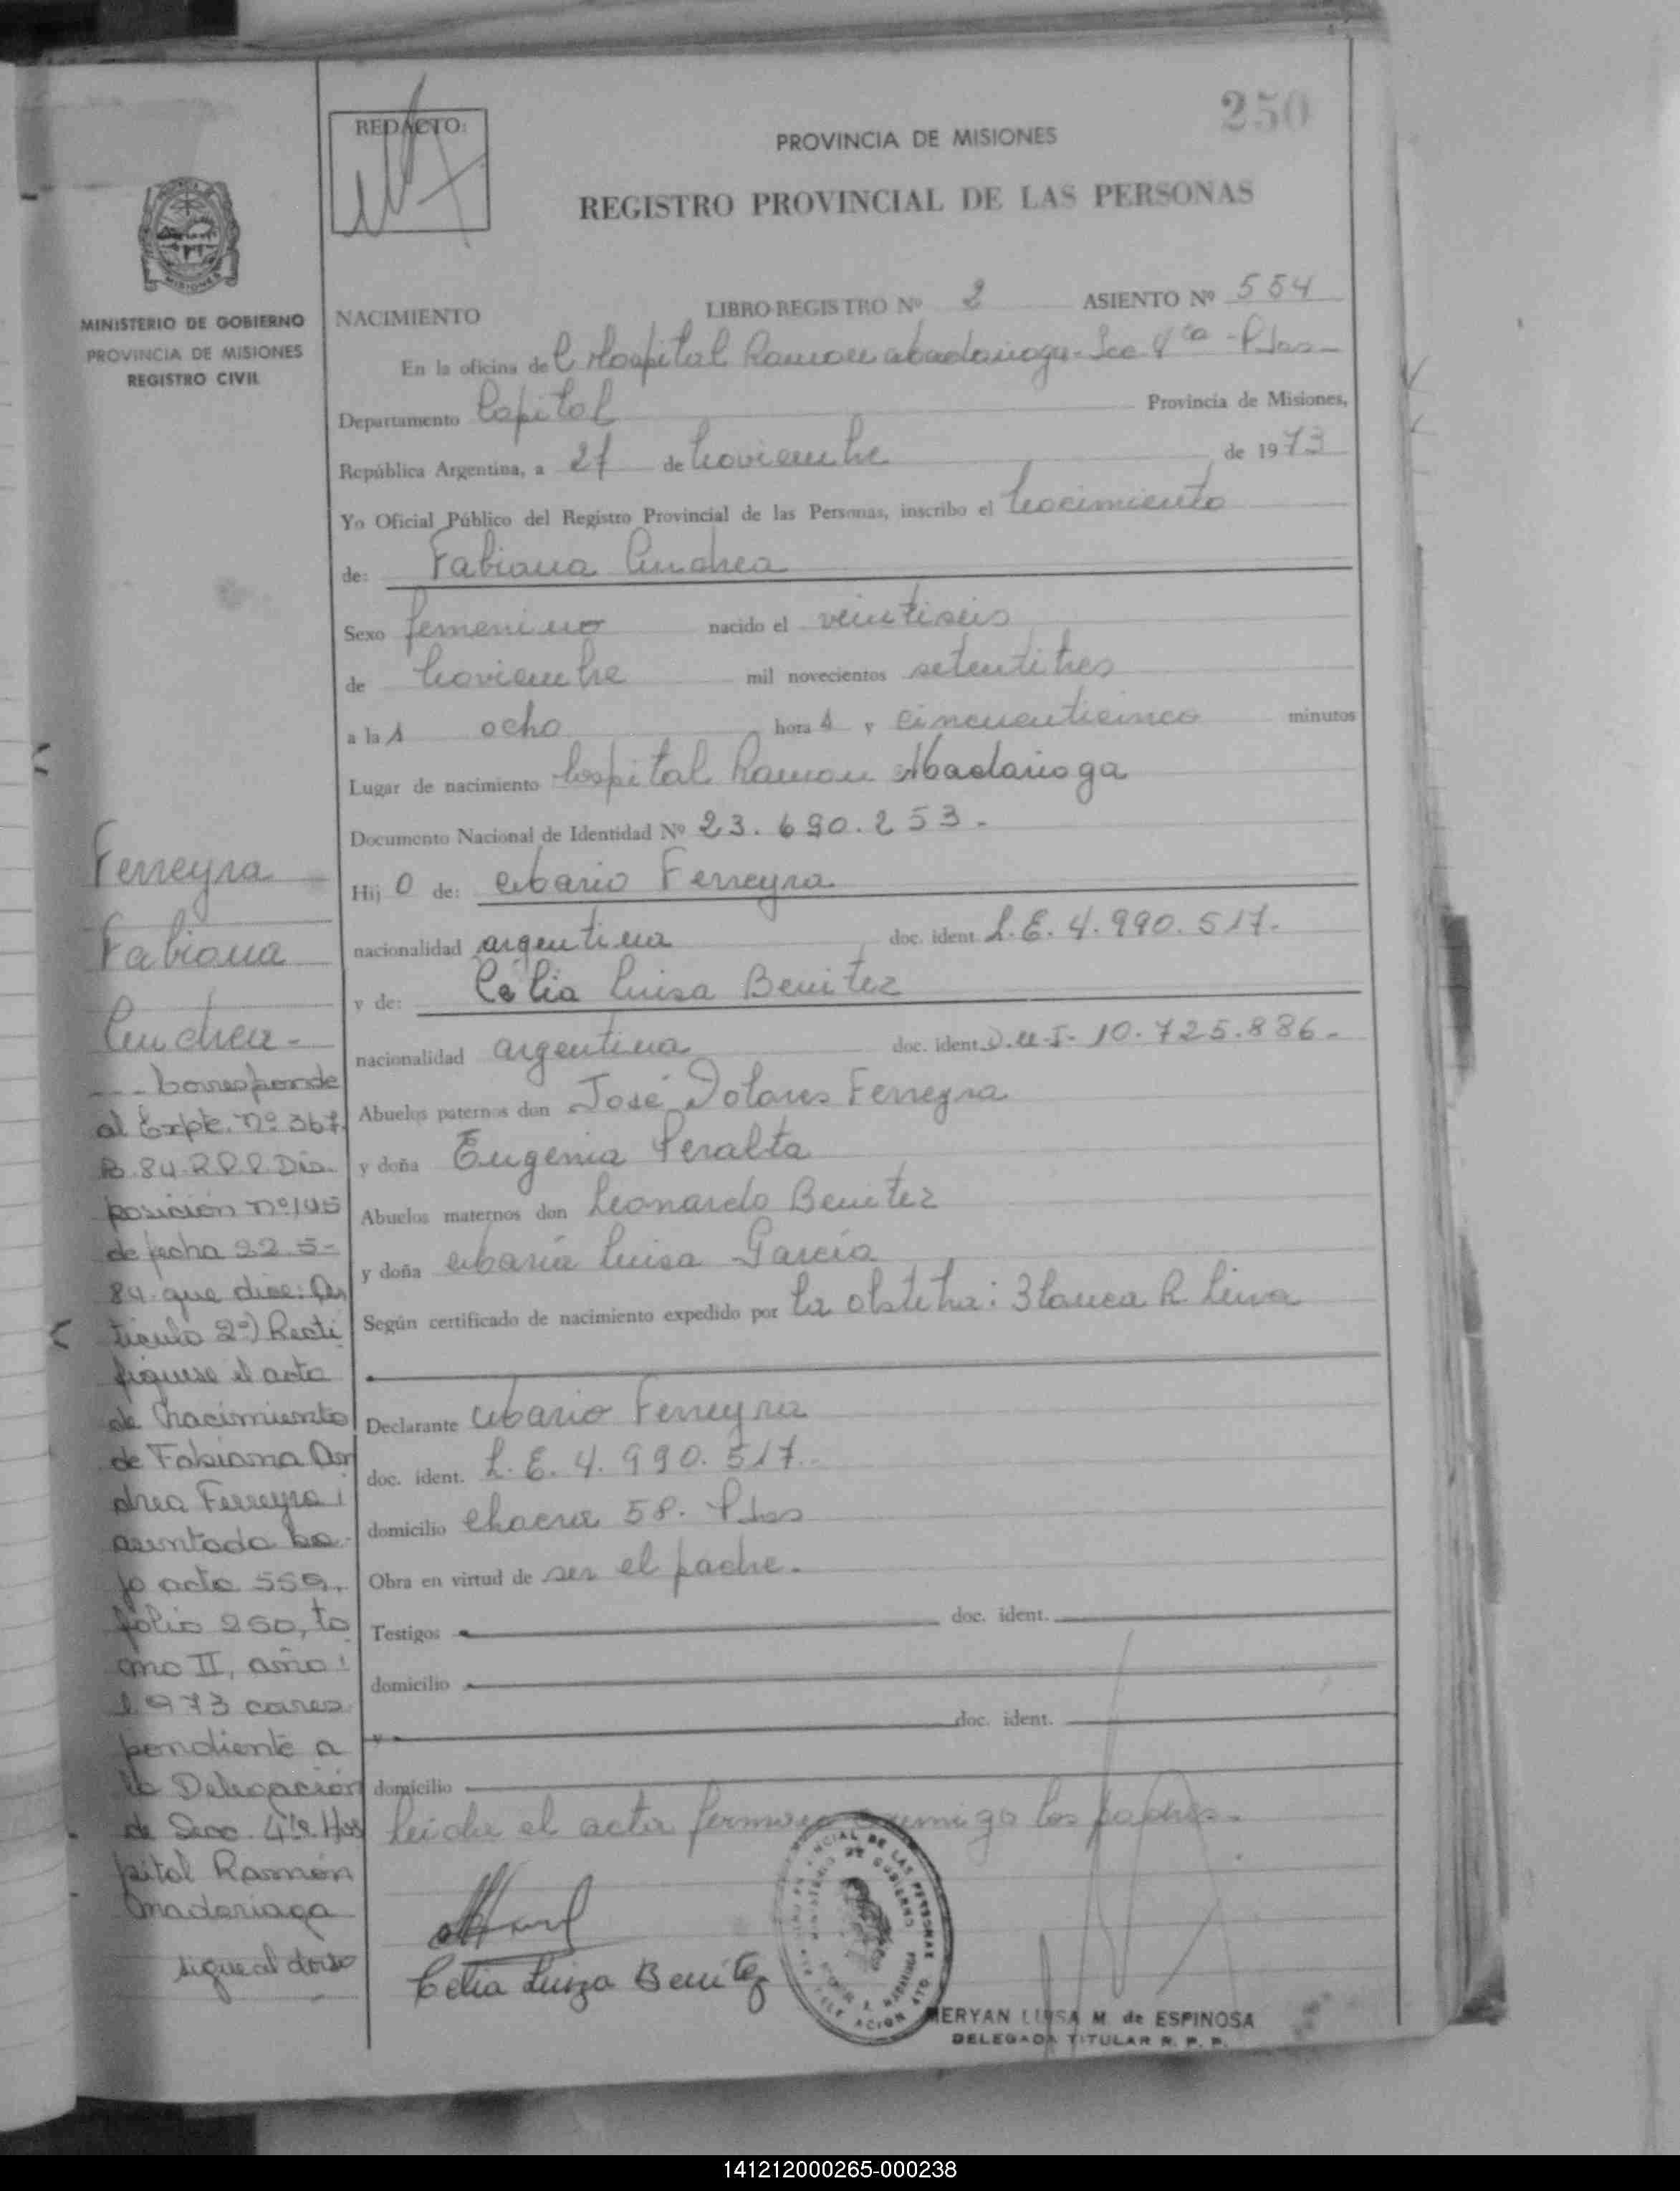 250
REDACTO:
PROVINCIA DE MISIONES
REGISTRO PROVINCIAL DE LAS PERSONAS
MINISTERIO DE GOBIERNO
PROVINCIA DE MISIONES
REGISTRO CIVIL
NACIMIENTO LIBRO-REGISTRO Nº 2 ASIENTO Nº 554
En la oficina del Hospital Ramon Madariaga - Sec 4ta - Pdas -
Departamento Capital Provincia de Misiones,
República Argentina, a 27 de Noviembre de 1973
Yo Oficial Público del Registro Provincial de las Personas, inscribo el Nacimiento
de: Fabiana Andrea
Sexo femenino nacido el veintiseis
de Noviembre mil novecientos setentitres
a las ocho horas y cincuenticinco minutos
Lugar de nacimiento Hospital Ramon Madariaga
Documento Nacional de Identidad Nº 23.690.253.-
Hijo de: Mario Ferreyra
nacionalidad argentina doc. ident. L.E. 4.990.517.-
y de: Celia Luisa Benitez
nacionalidad argentina doc. ident. D.N.I. 10.725.886.-
Abuelos paternos don José Dolores Ferreyra
y doña Eugenia Peralta
Abuelos maternos don Leonardo Benitez
y doña Maria Luisa Garcia
Según certificado de nacimiento expedido por la obstetra: Blanca R. Leiva
Declarante Mario Ferreyra
doc. ident. L.E. 4.990.517.-
domicilio Chacra 58. Pdas
Obra en virtud de ser el padre.
Testigos doc. ident.
domicilio
y doc. ident.
domicilio
Leida el acta firman conmigo los padres.
Celia Luiza Benitez
MERYAN LUISA M. de ESPINOSA
DELEGADA TITULAR R. P. P.
Ferreyra
Fabiana
Andrea -
--- Corresponde
al Expte. nº 367.
B. 84. R.P.P. Dis
posición nº 195
de fecha 22.5-
84 que dice: Ar
ticulo 2º) Recti
fiquese el acta
de Nacimiento
de Fabiana An
drea Ferreyra
asentada ba-
jo acta 559,
folio 250, to
mo II, año
1973 corres
pondiente a
la Delegación
de Secc. 4ta Hos
pital Ramón
Madariaga
sigue al dorso
141212000265-000238